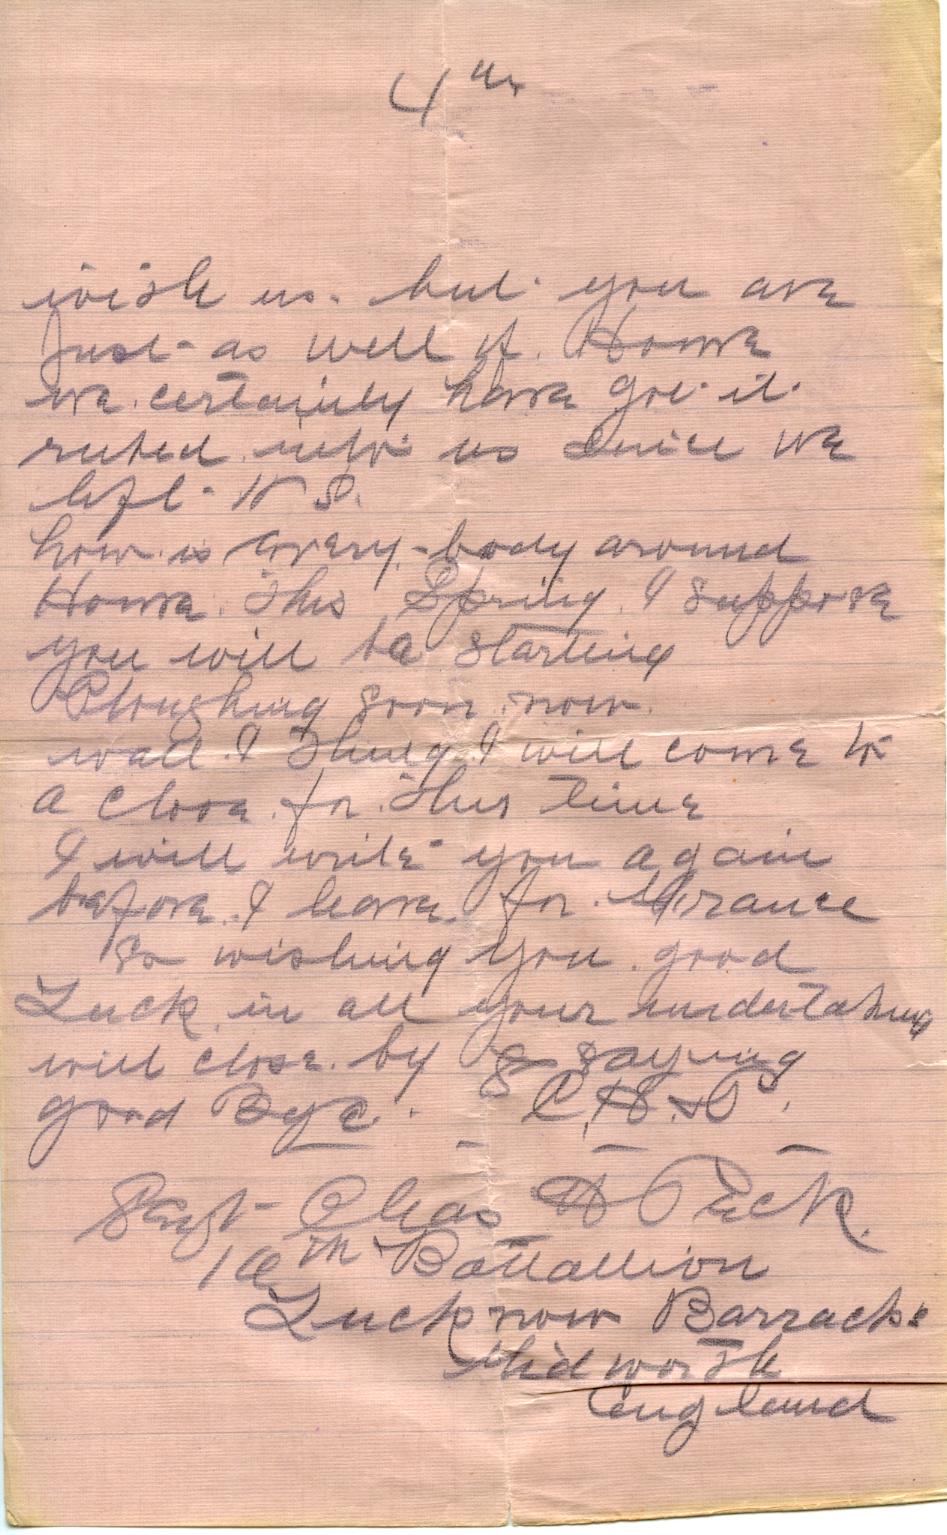 4th
wish us. but you are
Just as well of. Home
we certainly have got it
ruted into us since we
left N S.
how is every-body around
Home. This Spring. I suppose
you will be starting
Ploughing soon now.
wall I Thing I will come to
a close for this time
I will write you again
before I leave for France
So wishing you good
Luck in all your undertaking
will close by So saying
good Bye. C.H.P.
Sergt Chas H Peck.
10th Battallion
Lucknow Barracks
Tidworth
England